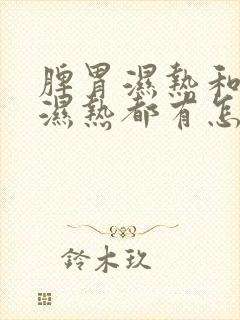 脾胃濕熱和
濕熱都有怎
鈴木玖